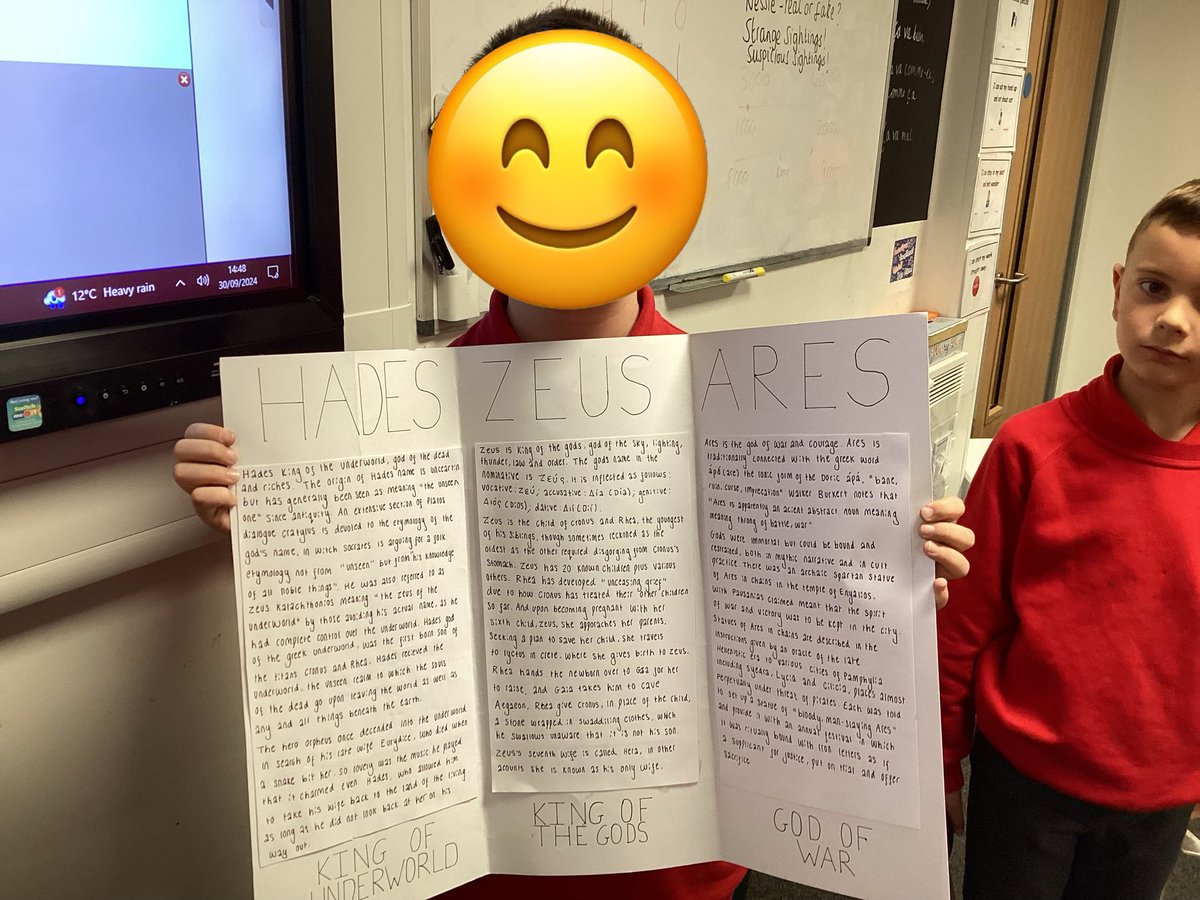 Nessie - real or fake?
Strange Sightings!
Suspicious Sightings!
12°C Heavy rain
14:48
30/09/2024
Switch
HADES
Hades king of the underworld, god of the dead
and riches. The origin of Hades name is unceartin
but has generally been seen as meaning "the unseen
one" since antiquity. An extensive section of Platos
dialogue cratylus is devoted to the etymology of the
god's name, in witch socrates is arguing for a folk
etymology not from "unseen" but from "his knowledge
of all noble things". He was also referred to as
Zeus Katachthonios meaning "the Zeus of the
underworld" by those avoiding his actual name, as he
had complete control over the underworld. Hades god
of the greek underworld, was the first born son of
the titans Cronus and Rhea. Hades recieved the
underworld, the unseen realm to which the souls
of the dead go upon leaving the world as well as
any and all things beneath the earth.
The hero orpheus once decended into the underworld
in search of his late wife Eurydice, who died when
a snake bit her. So lovely was the music he played
that it charmed even Hades, who allowed him
to take his wife back to the land of the living
as long as he did not look back at her on his
way out.
KING OF
UNDERWORLD
ZEUS
Zeus is king of the gods, god of the sky, lighting,
thunder, law and order. The gods name in the
nominative is Ζεύς. It is inflected as follows:
vocative: Ζεῦ; accusative: Δία (Día); genitive:
Διός (Diós); dative: Διί (Dií).
Zeus is the child of cronus and Rhea, the youngest
of his siblings, though sometimes reckoned as the
oldest as the other required disgorging from Cronus's
stomach. Zeus has 20 known children plus various
others. Rhea has developed "unceasing grief"
due to how Cronus has treated their other children
so far. And upon becoming pregnant with her
sixth child, Zeus, she approaches her parents,
seeking a plan to save her child. She travels
to lyctus in crete, where she gives birth to Zeus.
Rhea hands the newborn over to Gaa for her
to raise, and Gaia takes him to cave
Aegaeon, Rhea give Cronus, in place of the child,
a stone wrapped in swaddling clothes, which
he swallows unaware that it is not his son.
Zeus's seventh wife is called Hera, in other
acounts she is known as his only wife.
KING OF
THE GODS
ARES
Ares is the god of war and courage. Ares is
traditionally connected with the greek word
ἀρά (are) the Ionic form of the Doric ἀρά, "bane,
ruin, curse, imprecation" Walker Burkert notes that
"Ares is apparently an acient abstract noun meaning
meaning throng of battle, war"
Gods were immortal but could be bound and
restrained, both in mythic narrative and in cult
practice. There was an archaic Spartan statue
of Ares in chains in the temple of Enyalios,
With Pausanias claimed meant that the spirit
of war and victory was to be kept in the city.
Statues of Ares in chains are described in the
instructions given by an oracle of the late
Hellenistic era to various cities of Pamphylia
including Syedra, Lycia and Cilicia, places almost
perpetually under threat of pirates. Each was told
to set up a statue of "bloody, man-slaying Ares"
and provide it with an annual festival in which
it was ritually bound with iron fetters as if
a supplicant for justice, put on trial and offer
sacrifice
GOD OF
WAR